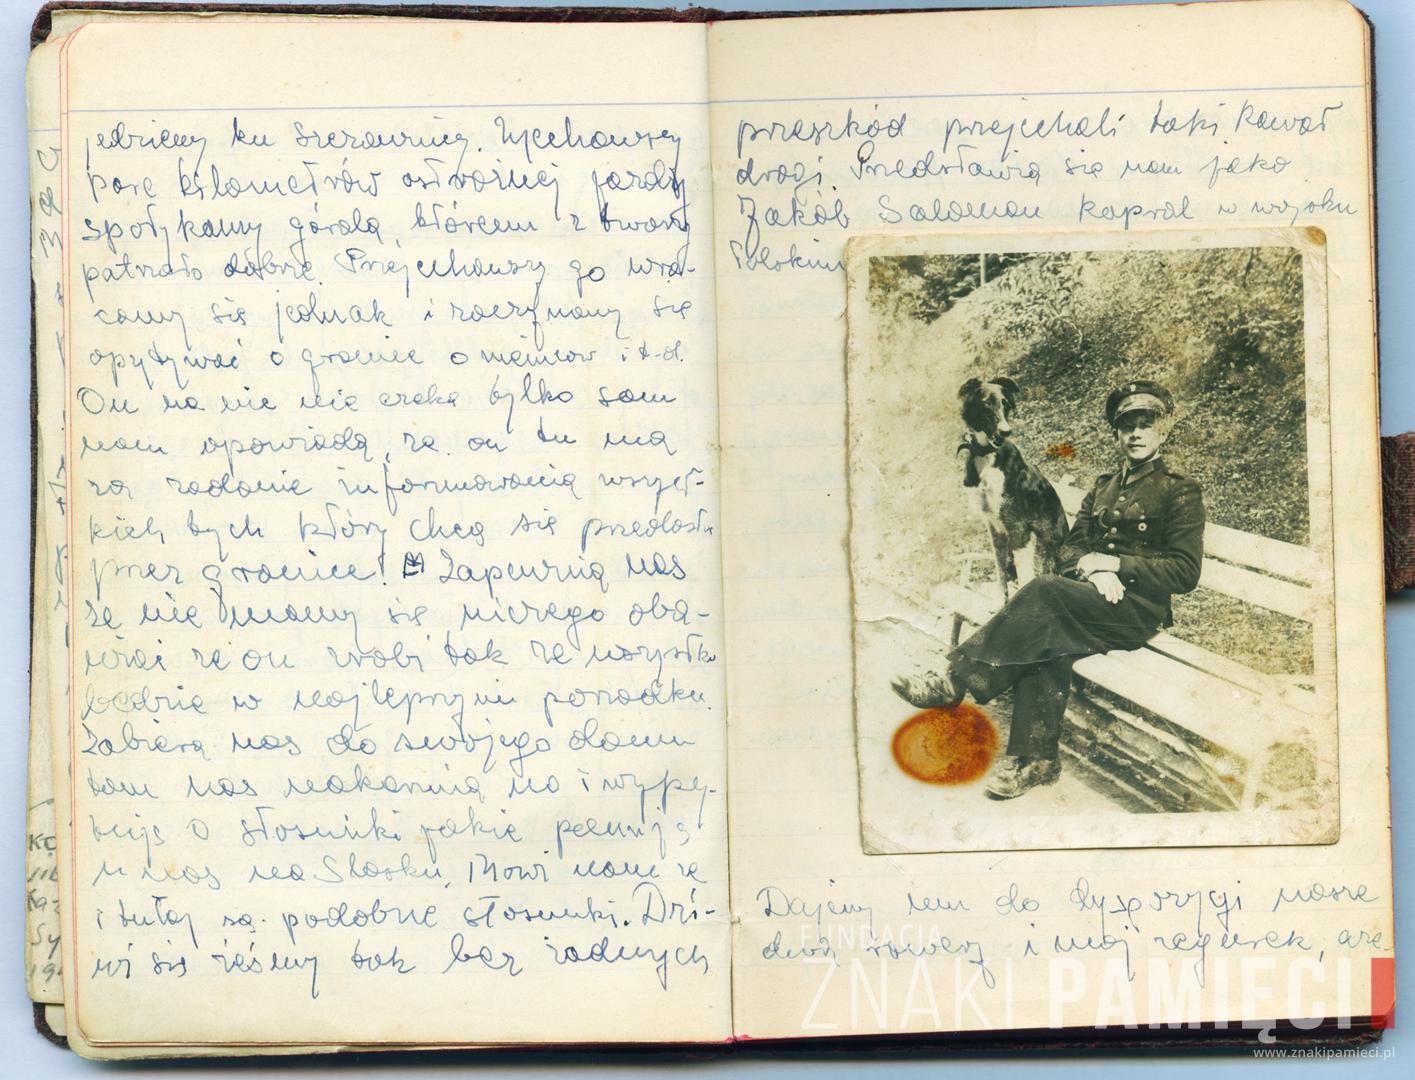 jedziemy ku Szczawnicy. Ujechawszy
parę kilometrów ostrożnej jazdy
spotykamy górala, któremu z twarzy
patrzało dobrze. Przejechawszy go wra-
camy się jednak i zaczynamy się
opytywać o granice o niemców i t-d.
On na nic nie czeka tylko sam
nam opowiada, że on tu ma
za zadanie informowania wszyst-
kich tych który chcą się przedostać
przez granice! Zapewnia nas
że nie mamy się niczego oba-
wiać że on zrobi tak że wszystko
będzie w najlepszym porządku.
Zabiera nas do swojego domu
tam nas nakarmia no i wypy-
tuje o stosunki jakie panują
u nas na Śląsku, Mowi nam że
i tutaj są podobne stosunki. Dzi-
wi się żeśmy tak bez żadnych
przeszkód przejechali taki kawał
drogi. Przedstawia się nam jako
Jakób Salomon kapral w wojsku
Polskim
Dajemy mu do dyspozycji nasze
dwa rowery i mój zegarek, aże-
FUNDACJA
ZNAKI PAMIĘCI
www.znakipamieci.pl